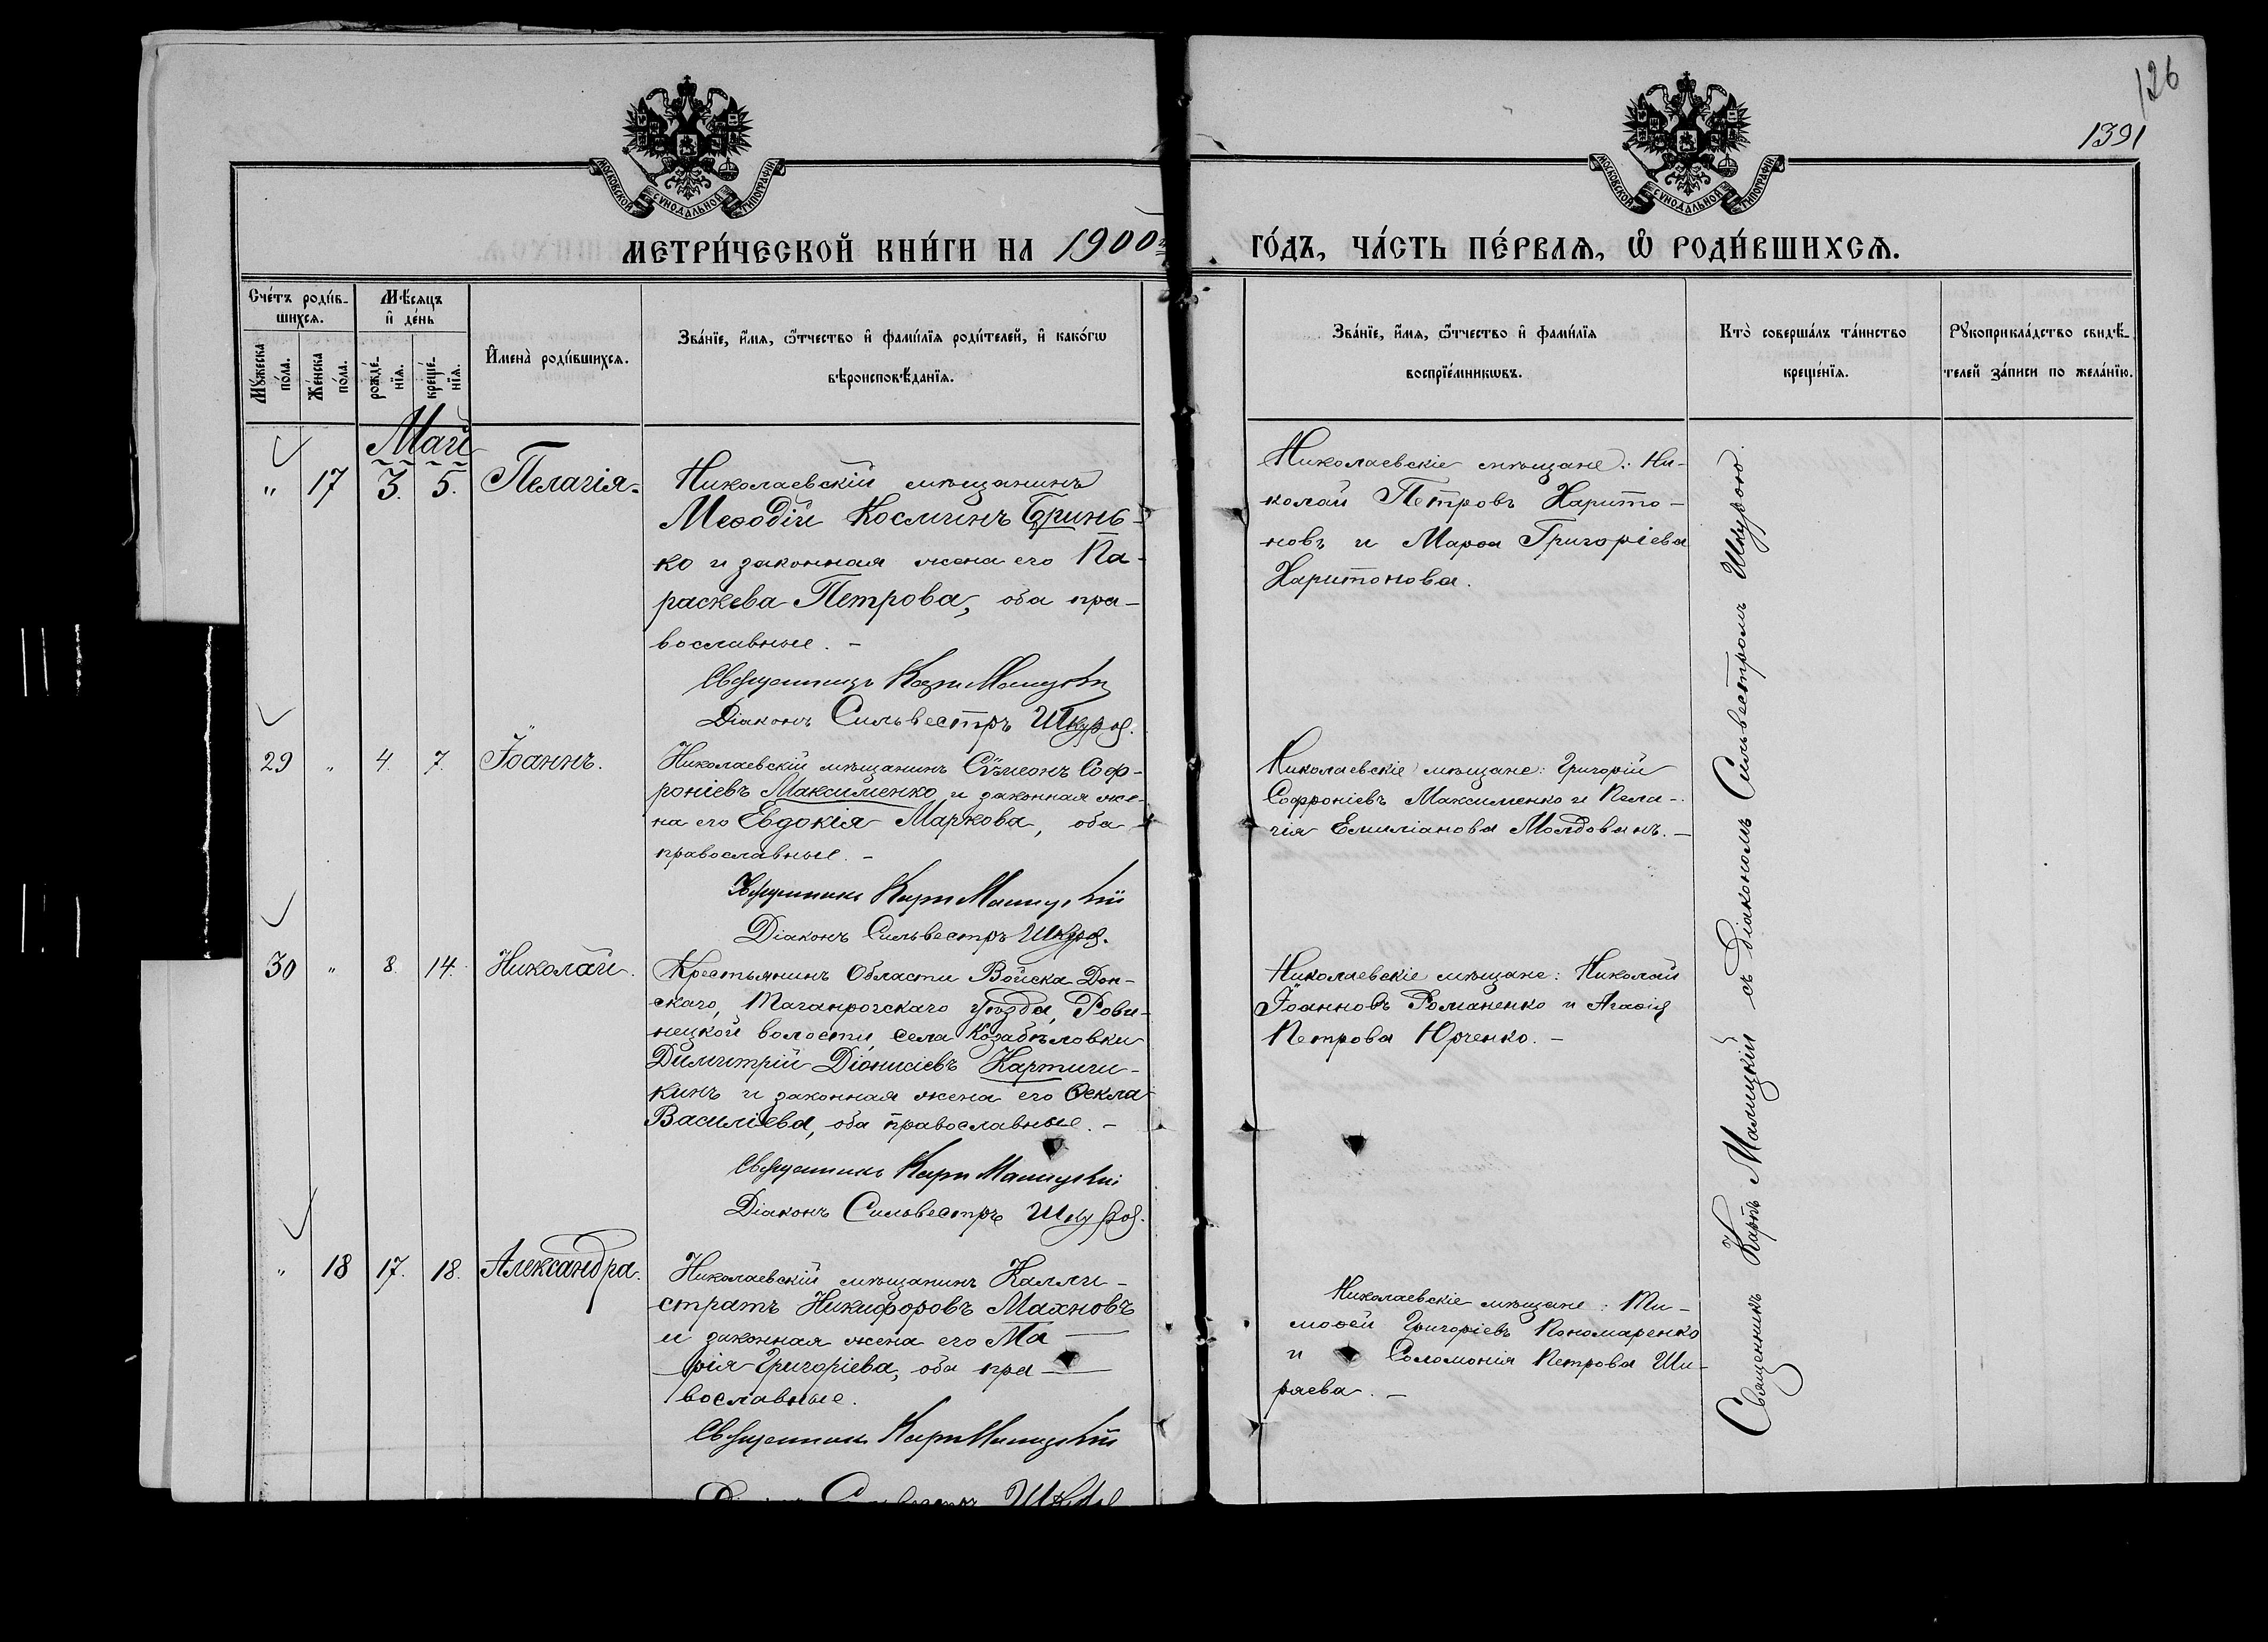 126
1391
МОСКОВСКОЙ СѴНОДАЛЬНОЙ ТИПОГРАФІИ
МОСКОВСКОЙ СѴНОДАЛЬНОЙ ТИПОГРАФІИ
МЕТРИ́ЧЕСКОЙ КНИ́ГИ НА 1900
ГО́ДЪ, ЧА́СТЬ ПЕ́РВАѦ, Ѡ҆ РОДИ́ВШИХСѦ.
Сче́тъ роди́в-
шихсѧ.
Мѣ́сѧцъ
и҆ де́нь
Мꙋ́жеска
по́ла.
Же́нска
по́ла.
рожде́-
нїѧ.
креще́-
нїѧ.
И҆мена̀ роди́вшихсѧ.
Зва́нїе, и҆́мѧ, ѻ҆́тчество и҆ фами́лїѧ роди́телей, и҆ како́гѡ
вѣроисповѣ́данїѧ.
Зва́нїе, и҆́мѧ, ѻ҆́тчество и҆ фами́лїѧ
воспрїе́мникѡвъ.
Кто̀ соверша́лъ та́инство
креще́нїѧ.
Рꙋкоприкла́дство свидѣ́-
телей за́писи по жела́нїю.
Май
" 17 3. 5. Пелагія.
Николаевскій мѣщанинъ
Меѳодій Космин​ъ Гринь-
ко и законная жена его Па-
раскева Петрова, оба пра-
вославные. –
Священникъ Карпъ Малицкій
Діаконъ Сильвестръ Шкура.
Николаевскіе мѣщане: Ни-
колай Петровъ Харито-
новъ и Марѳа Григоріева
Харитонова.
29 " 4. 7. Іоаннъ.
Николаевскій мѣщанинъ Сѵмеонъ Соф-
роніевъ Максименко и законная же-
на его Евдокія Маркова, оба
православные. –
Священникъ Карпъ Малицкій
Діаконъ Сильвестръ Шкура.
Николаевскіе мѣщане: Григорій
Софроніевъ Максименко и Пела-
гія Емиліанова Молдованъ. –
30 " 8. 14. Николай.
Крестьянинъ Области Войска Дон-
скаго, Таганрогскаго уѣзда, Рови-
нецкой волости, села Козабѣловки
Димитрій Діонисіевъ Картичи-
кинъ и законная жена его Ѳекла
Василіева, оба православные. –
Священникъ Карпъ Малицкій
Діаконъ Сильвестръ Шкура.
Николаевскіе мѣщане: Николай
Іоанновъ Романенко и Агаѳія
Петрова Юрченко. –
" 18 17. 18. Александра.
Николаевскій мѣщанинъ Калли-
стратъ Никифоровъ Махновъ
и законная жена его Ма-
рія Григоріева, оба пра-
вославные.
Священникъ Карпъ Малицкій
Николаевскіе мѣщане: Ти-
моѳей Григоріевъ Пономаренко
и Соломонія Петрова Ши-
раева. –
Священникъ Карпъ Малицкій съ Діакономъ Сильвестромъ Шкурою.